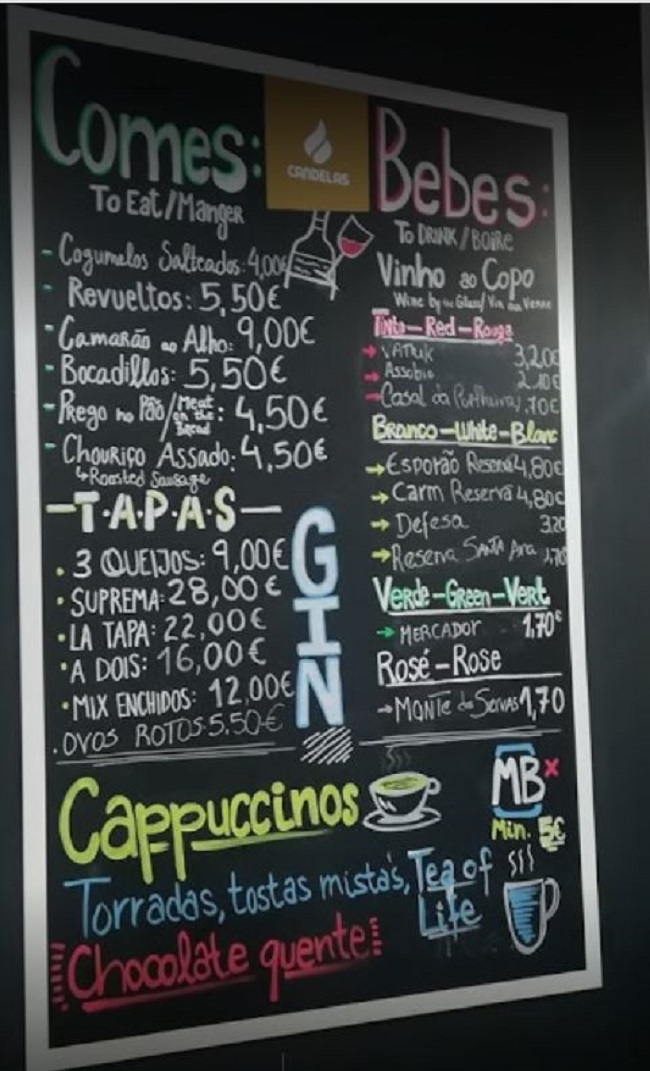 Comes:
To Eat/Manger
- Cogumelos Salteados: 4,00€
- Revueltos: 5,50€
- Camarão ao Alho: 9,00€
- Bocadillos: 5,50€
- Prego no Pão/Meat on the Bread: 4,50€
- Chouriço Assado: 4,50€
↳Roasted Sausage
-T.A.P.A.S-
. 3 QUEIJOS: 9,00€
. SUPREMA: 28,00€
. LA TAPA: 22,00€
. A DOIS: 16,00€
. MIX ENCHIDOS: 12,00€
. OVOS ROTOS: 5,50€
GIN
CANDELAS
Bebes:
To DRINK/BOIRE
Vinho ao Copo
Wine by the Glass/Vin au Verre
Tinto-Red-Rouge
→ 3,20€
→ Assobio 2,10€
→ Casal da ,70€
Branco-White-Blanc
→ Esporão Reserva 4,80€
→ Carm Reserva 4,80€
→ Defesa 3,20
→ Reserva SANTA Ana 1,70
Verde-Green-Vert
→ MERCADOR 1,70€
Rosé-Rose
→ MONTE das SERVAS 1,70
Cappuccinos
MB x
Min. 5€
Torradas, tostas mistas, Tea of Life
Chocolate quente